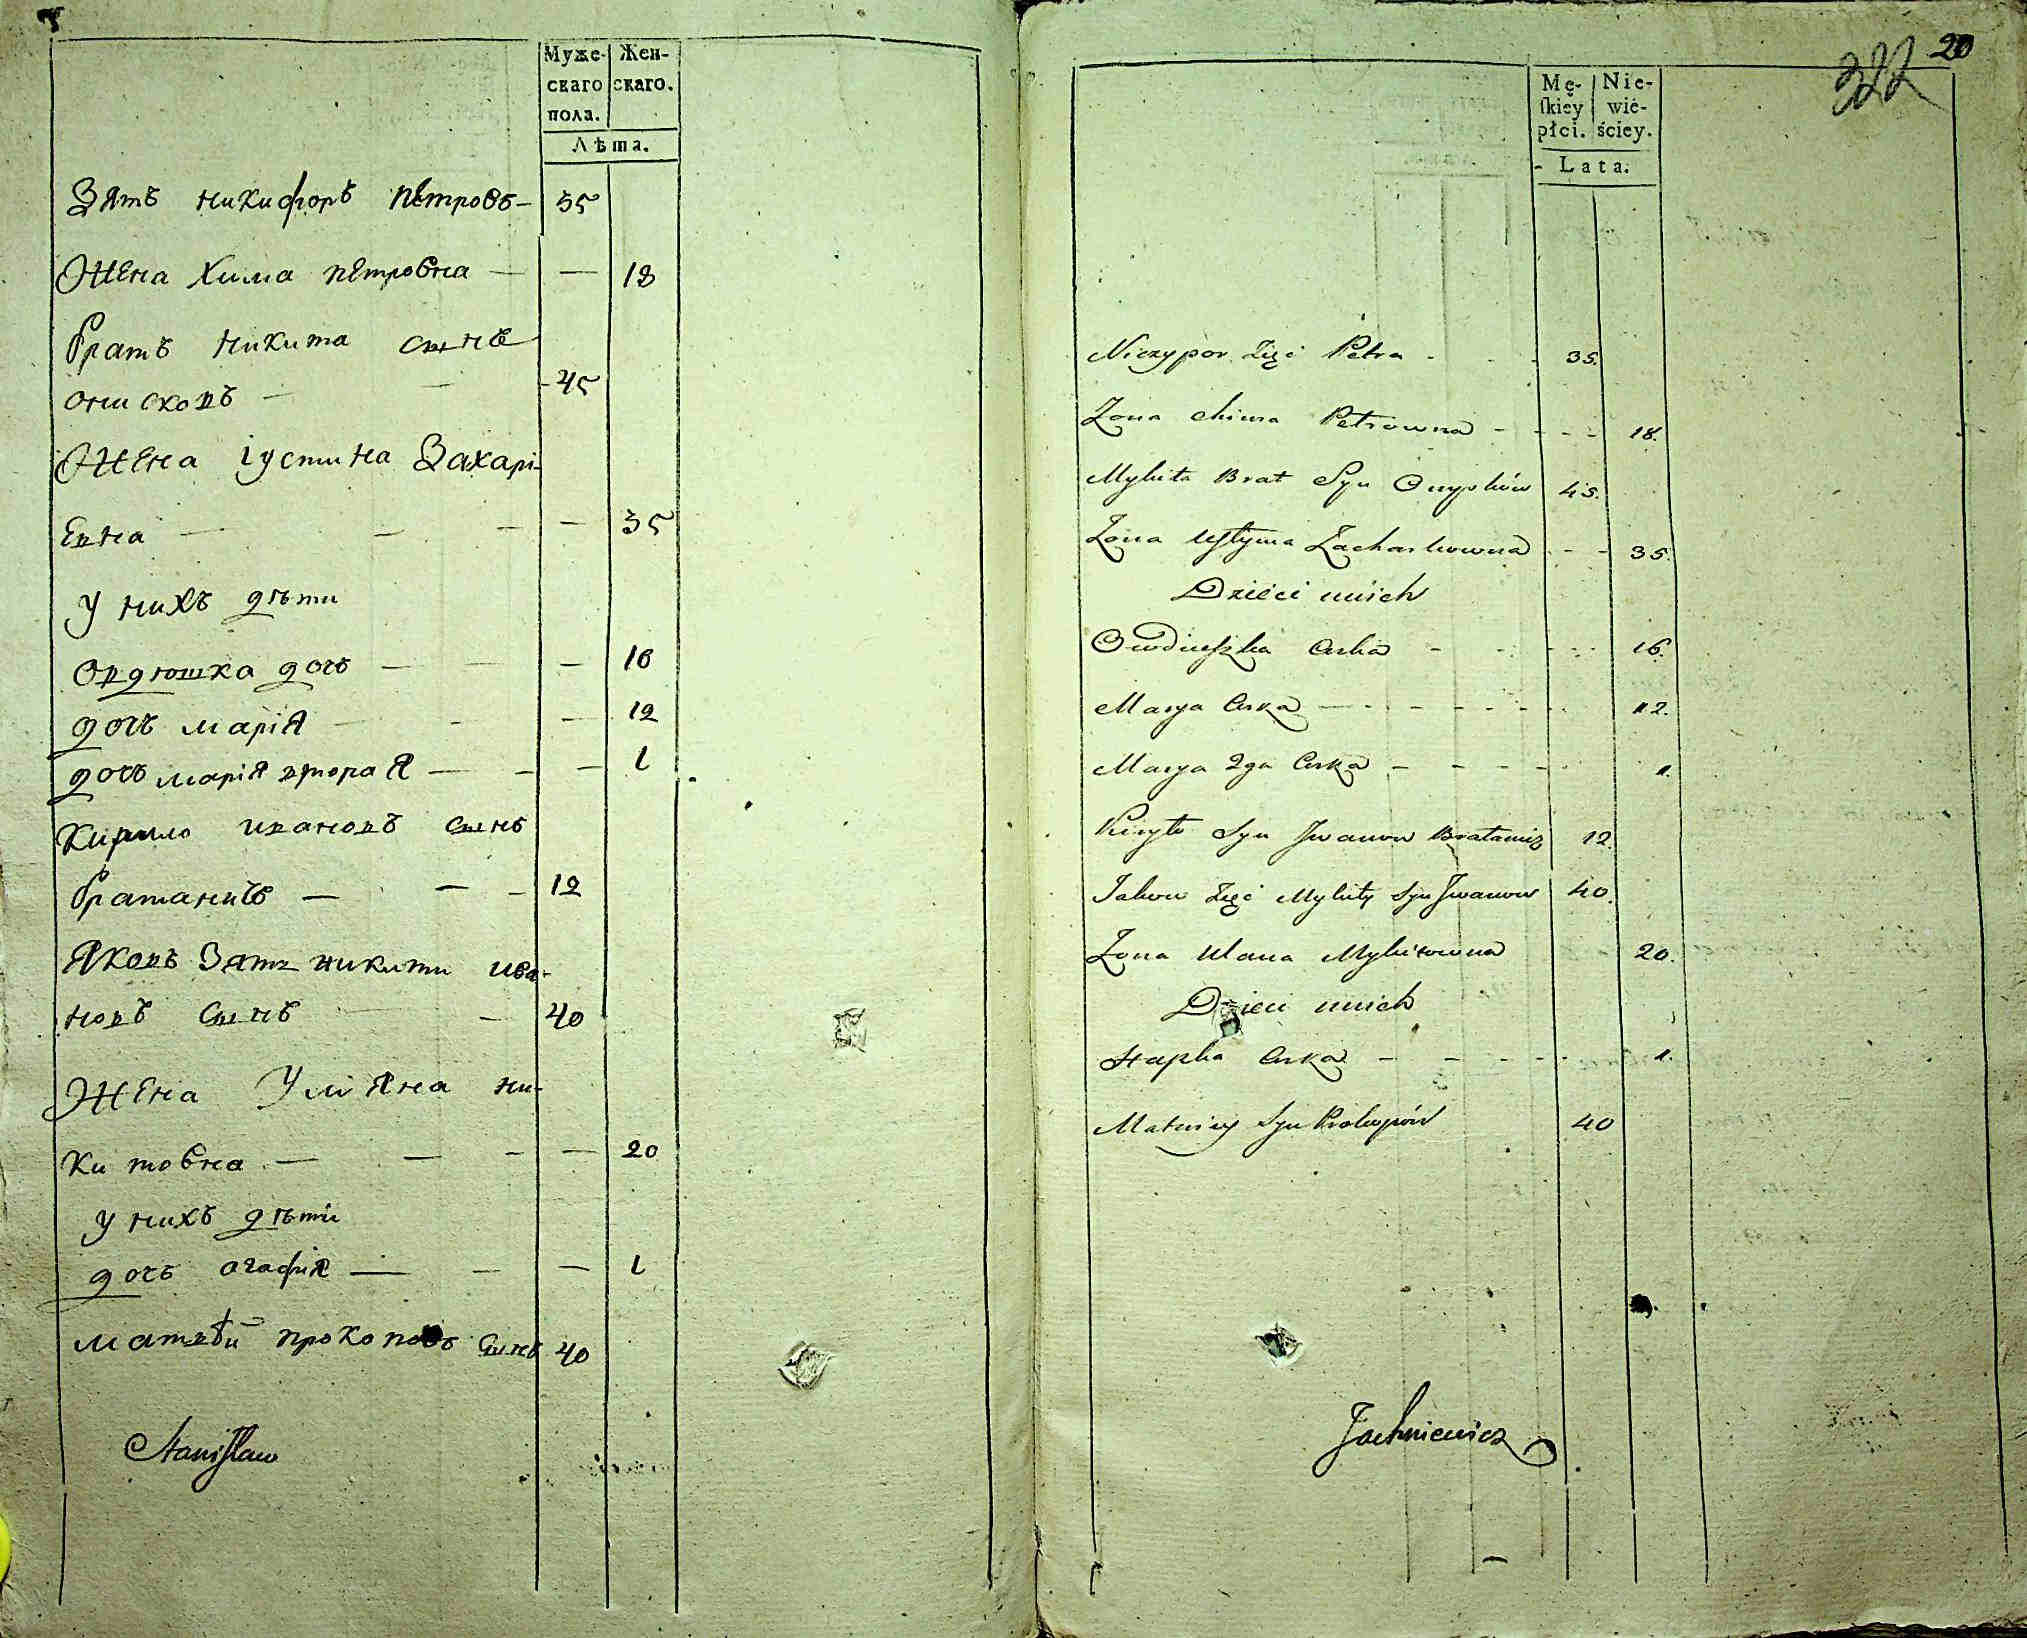 Муже- Жен-
скаго скаго.
пола.
Лѣта.
Зять никифоръ петровъ — 35
Жена Хима петровна — — 18
братъ никита сынъ
онисковъ — — 45
Жена іустина Захарі-
евна — — — — 35
у нихъ дѣти
Овдюшка дочь — — — 16
дочь маріа — — — 12
дочь маріа втораа — — — 1
Кирило ивановъ сынъ
братаничъ — — — 12
Яковъ Зять никити ива-
новъ сынъ — — 40
Жена Уліяна ни-
китовна — — — — 20
у нихъ дѣти
дочь агафиа — — — 1
матвѣй прокоповъ сынъ 40
Stanisław
322 20
Mę- Nie-
skiey wie-
płci. ściey.
Lata.
Niczypor Zięć Petra - - - 35.
Żona Chima Petrowna - - - - 18.
Mykita Brat Syn Onyśków 45.
Żona Ustyma Zacharkowna - - - 35.
Dzieci unich
Owdiuszka Curka - - - - 16.
Marya Curka - - - - - - 12.
Marya 2ga Curka - - - - - 1.
Kiryło Syn Jwanow Bratanicz 12.
Jakow Zięć Mykity Syn Jwanow 40.
Żona Ulana Mykitowna 20.
Dzieci unich
Hapka Curka - - - - - 1.
Matwiey Syn Prokopów 40
Jachniewicz